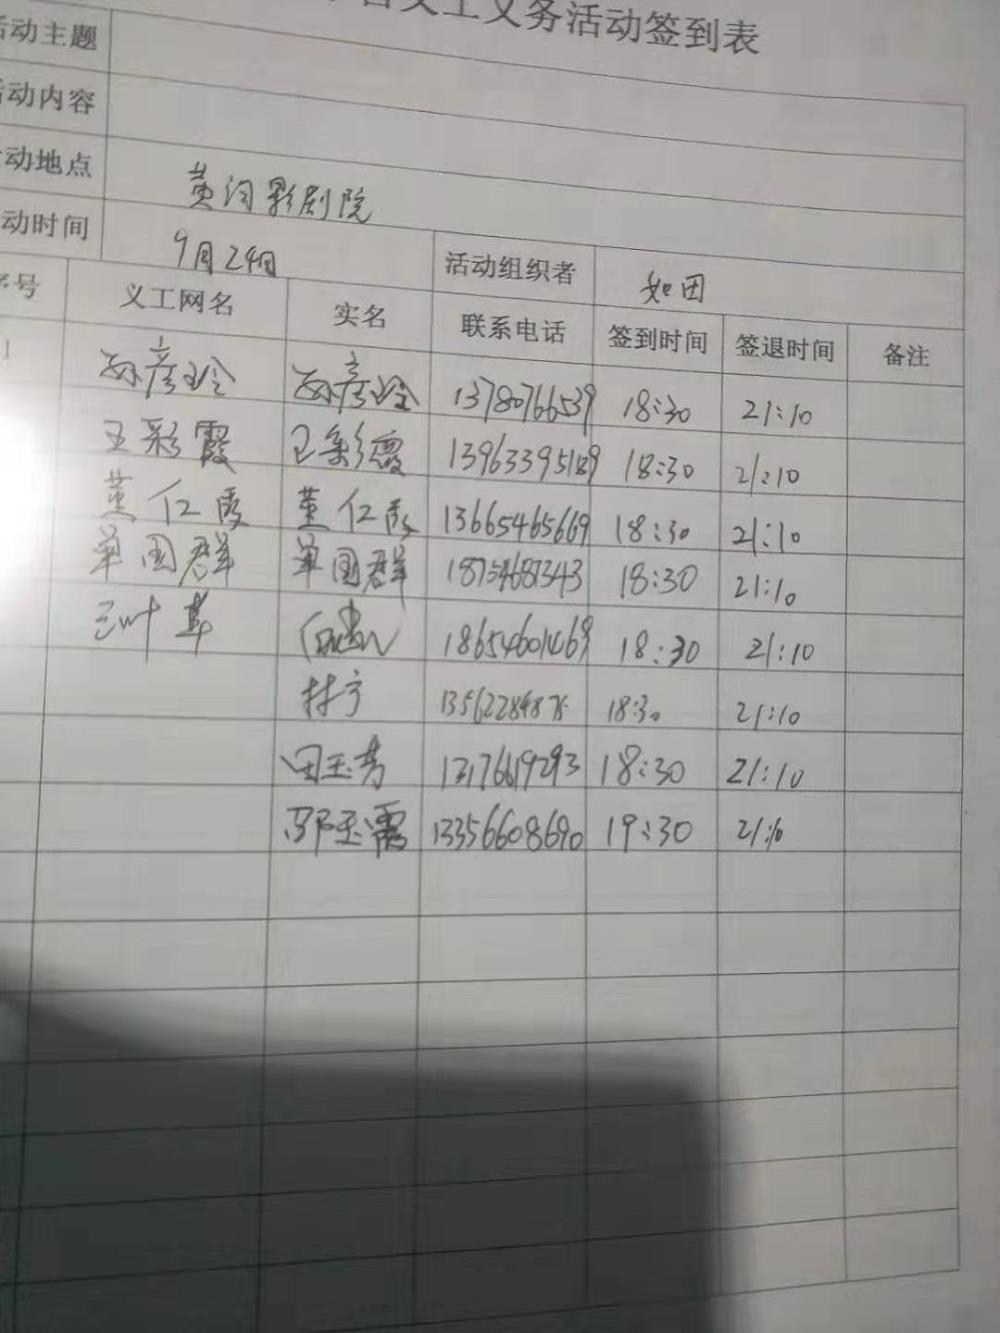 义工义务活动签到表
活动主题
活动内容
活动地点 黄河影剧院
动时间 9月24日 活动组织者 如田
序号 义工网名 实名 联系电话 签到时间 签退时间 备注
1 孙彦玲 孙彦玲 13780766539 18:30 21:10
王彩霞 王彩霞 13963395189 18:30 21:10
董仁霞 董仁霞 13665465669 18:30 21:10
单国群 单国群 18754687343 18:30 21:10
三叶草 18654601469 18:30 21:10
林宁 18:30 21:10
田玉芳 13176619293 18:30 21:10
邵玉霞 13356608690 19:30 21:10